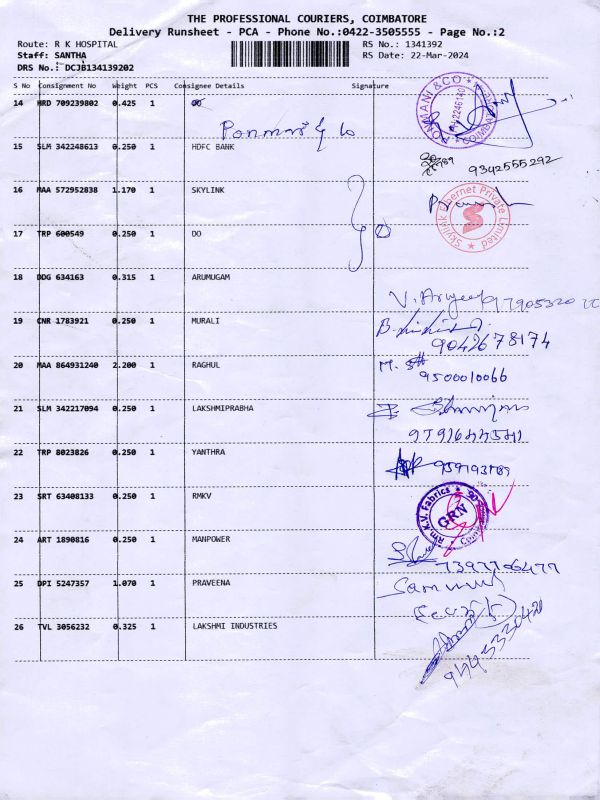 THE PROFESSIONAL COURIERS, COIMBATORE
Delivery Runsheet - PCA - Phone No.:0422-3505555 - Page No.:2
Route: R K HOSPITAL RS No.: 1341392
Staff: SANTHA RS Date: 22-Mar-2024
DRS No.: DCJB134139202
S No Consignment No Weight PCS Consignee Details Signature
14 HRD 709239802 0.425 1
PONMANI & CO
15 SLM 342248613 0.250 1 HDFC BANK
9342555292
16 MAA 572952838 1.170 1 SKYLINK
Skylink Fibernet Private Limited
17 TRP 600549 0.250 1 DO
18 DDG 634163 0.315 1 ARUMUGAM
19 CNR 1783921 0.250 1 MURALI
9042678174
20 MAA 864931240 2.200 1 RAGHUL
9500010066
21 SLM 342217094 0.250 1 LAKSHMIPRABHA
22 TRP 8023826 0.250 1 YANTHRA
23 SRT 63408133 0.250 1 RMKV
Rm.K.V. Fabrics
GRN
24 ART 1890816 0.250 1 MANPOWER
25 DPI 5247357 1.070 1 PRAVEENA
26 TVL 3056232 0.325 1 LAKSHMI INDUSTRIES